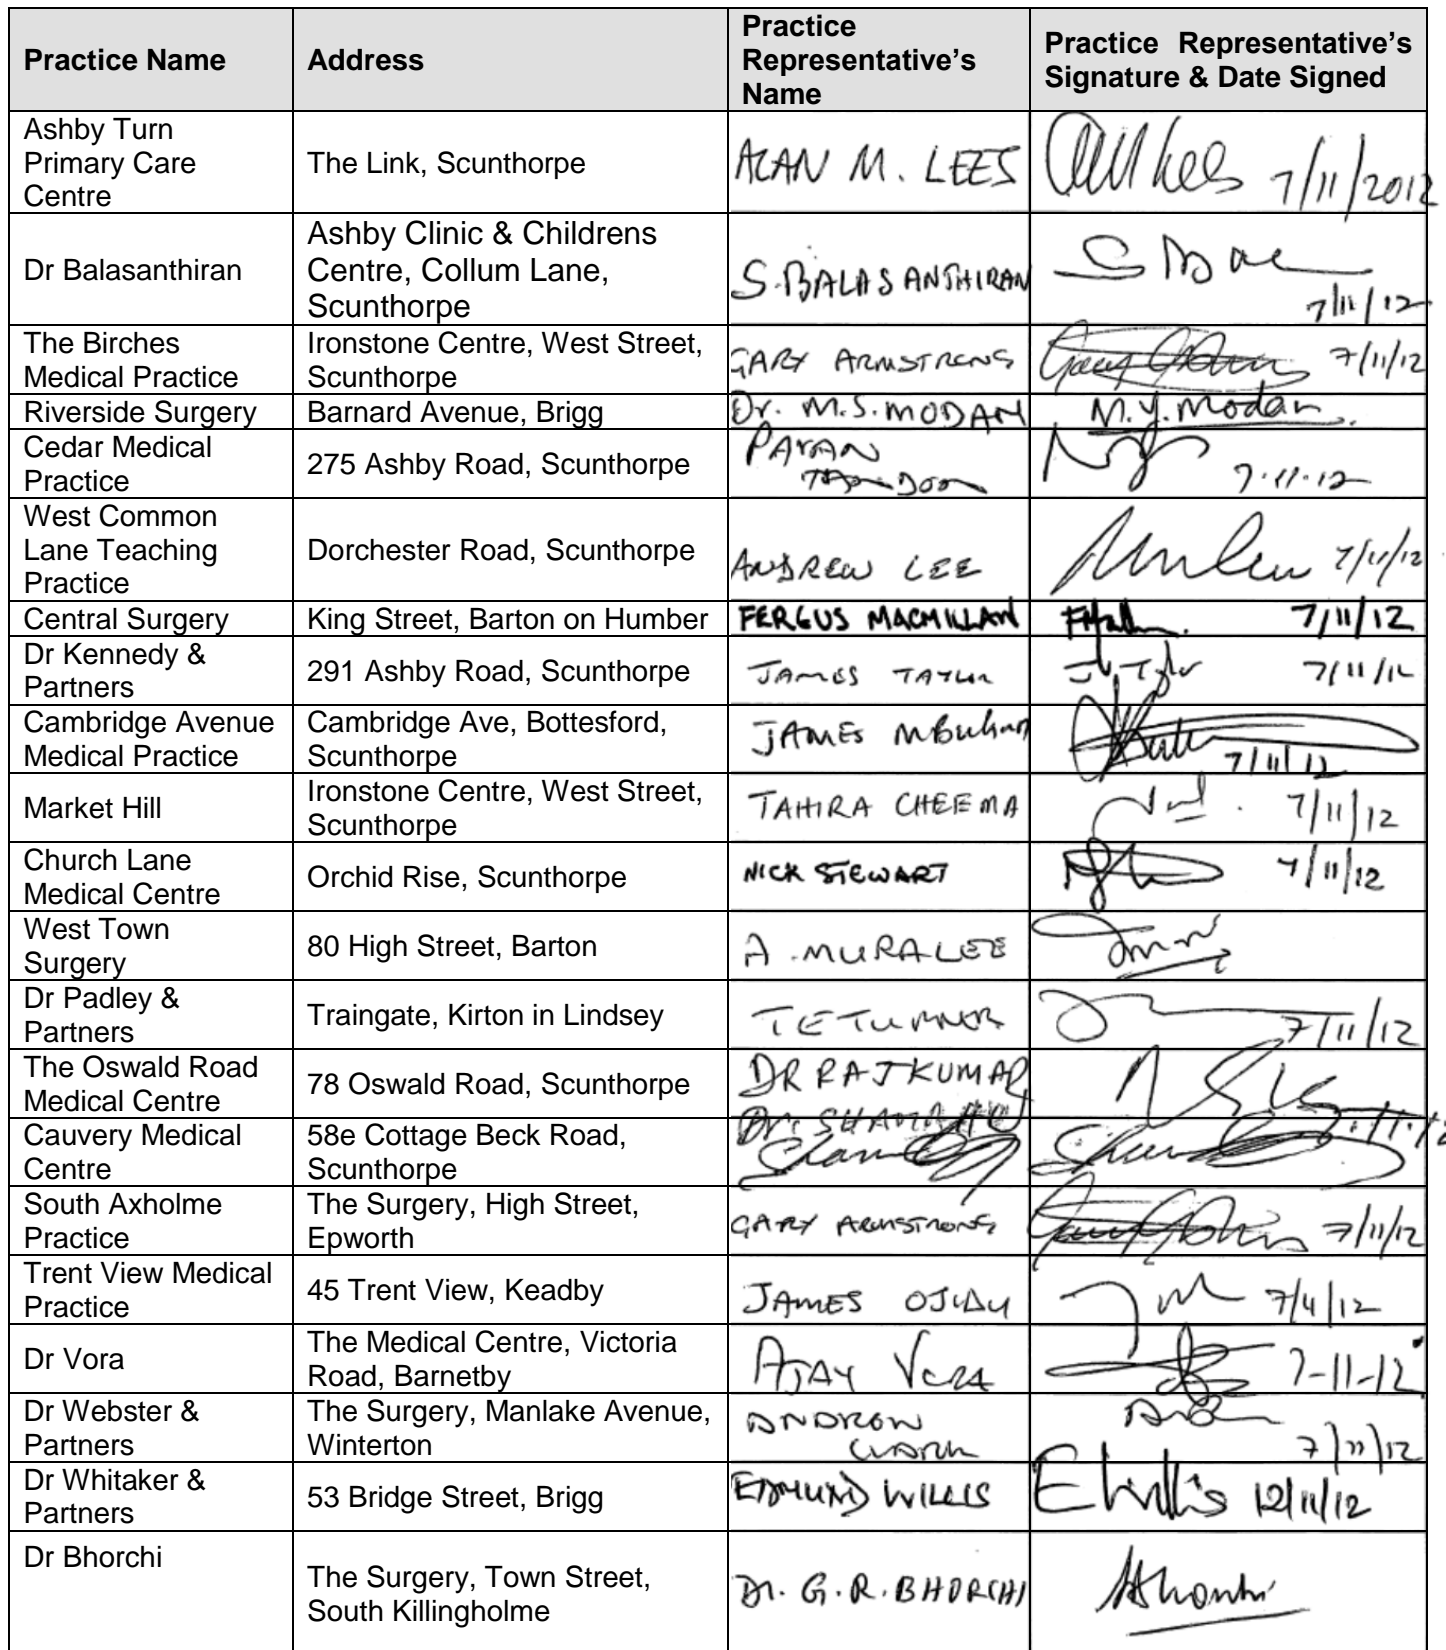 Practice Name
Address
Practice
Representative's
Name
Practice Representative's
Signature & Date Signed
Ashby Turn
Primary Care
Centre
The Link, Scunthorpe
ALAN M. LEES
7/11/2012
Dr Balasanthiran
Ashby Clinic & Childrens
Centre, Collum Lane,
Scunthorpe
S. BALASANTHIRAN
7/11/12
The Birches
Medical Practice
Ironstone Centre, West Street,
Scunthorpe
GARY ARMSTRONG
7/11/12
Riverside Surgery
Barnard Avenue, Brigg
Dr. M.S. MODAN
M.Y. Modan.
Cedar Medical
Practice
275 Ashby Road, Scunthorpe
7.11.12
West Common
Lane Teaching
Practice
Dorchester Road, Scunthorpe
ANDREW LEE
7/11/12
Central Surgery
King Street, Barton on Humber
FERGUS MACMILLAN
7/11/12
Dr Kennedy &
Partners
291 Ashby Road, Scunthorpe
JAMES TAYLOR
7/11/12
Cambridge Avenue
Medical Practice
Cambridge Ave, Bottesford,
Scunthorpe
JAMES
7/11/12
Market Hill
Ironstone Centre, West Street,
Scunthorpe
TAHIRA CHEEMA
7/11/12
Church Lane
Medical Centre
Orchid Rise, Scunthorpe
NICK STEWART
7/11/12
West Town
Surgery
80 High Street, Barton
A. MURALEE
Dr Padley &
Partners
Traingate, Kirton in Lindsey
T E TURNER
7/11/12
The Oswald Road
Medical Centre
78 Oswald Road, Scunthorpe
DR RAJKUMAR
Cauvery Medical
Centre
58e Cottage Beck Road,
Scunthorpe
Dr.
South Axholme
Practice
The Surgery, High Street,
Epworth
GARY ARMSTRONG
7/11/12
Trent View Medical
Practice
45 Trent View, Keadby
JAMES
7/4/12
Dr Vora
The Medical Centre, Victoria
Road, Barnetby
AJAY VORA
7-11-12
Dr Webster &
Partners
The Surgery, Manlake Avenue,
Winterton
ANDREW
7/11/12
Dr Whitaker &
Partners
53 Bridge Street, Brigg
EDMUND WILLIS
E Willis 12/11/12
Dr Bhorchi
The Surgery, Town Street,
South Killingholme
Dr. G.R. BHORCHI